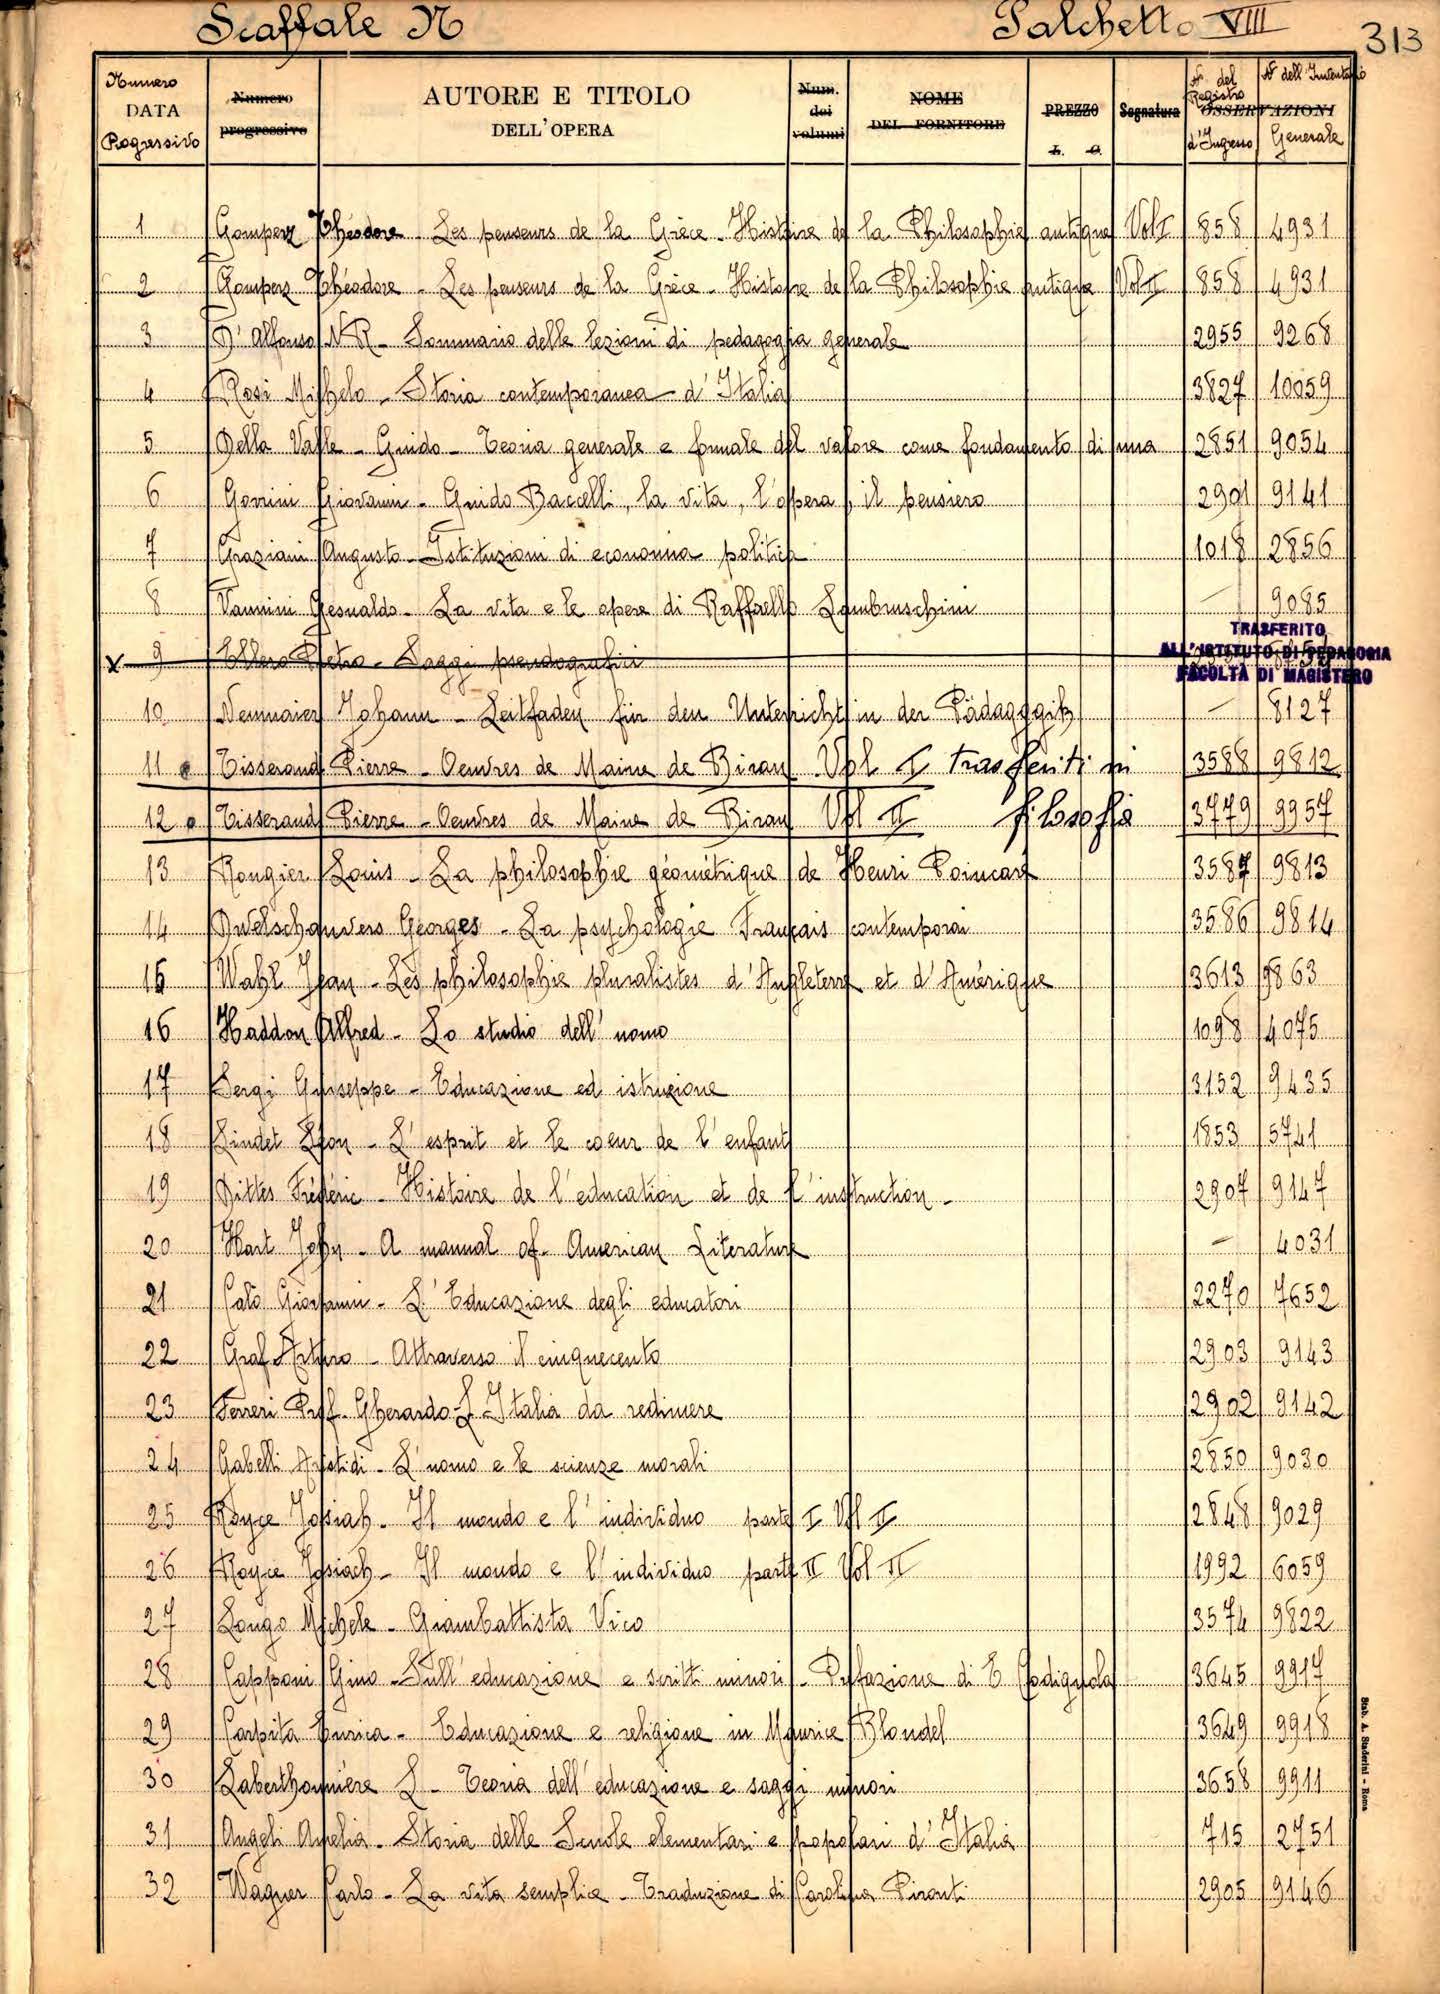 Scaffale N Palchetto VIII 313
Numero DATA Progressivo Numero progressivo AUTORE E TITOLO DELL'OPERA Num. dei volumi NOME DEL FORNITORE PREZZO L. C. Segnatura OSSERVAZIONI N° del Registro d'Ingresso N° dell'Inventario Generale
1 Gomperz Théodore - Les penseurs de la Grèce - Histoire de la Philosophie antique Vol I 858 4931
2 Gomperz Théodore - Les penseurs de la Grèce - Histoire de la Philosophie antique Vol II 858 4931
3 D'Alfonso NR - Sommario delle lezioni di pedagogia generale 2955 9268
4 Rosi Michele - Storia contemporanea d'Italia 3827 10059
5 Della Valle - Guido - Teoria generale e formale del valore come fondamento di una 2851 9054
6 Gorrini Giovanni - Guido Baccelli, la vita, l'opera, il pensiero 2901 9141
7 Graziani Augusto - Istituzioni di economia politica 1018 2856
8 Vannini Gesualdo - La vita e le opere di Raffaello Lambruschini — 9085
TRASFERITO
x 9 Ellero Pietro - Saggi pseudografici
ALL'ISTITUTO DI PEDAGOGIA
FACOLTÀ DI MAGISTERO
10 Neumaier Johann - Leitfaden für den Unterricht in der Pädagogik — 8127
11 Tisserand Pierre - Oeuvres de Maine de Biran Vol I trasferiti in 3588 9812
12 Tisserand Pierre - Oeuvres de Maine de Biran Vol II filosofia 3779 9957
13 Rougier Louis - La philosophie géométrique de Henri Poincaré 3587 9813
14 Dwelschauvers Georges - La psychologie Français contemporai 3586 9814
15 Wahl Jean - Les philosophie pluralistes d'Angleterre et d'Amérique 3613 9863
16 Haddon Alfred - Lo studio dell'uomo 1098 4075
17 Sergi Giuseppe - Educazione ed istruzione 3152 9435
18 Lindet Léon - L'esprit et le coeur de l'enfant 1853 5741
19 Dittes Frédéric - Histoire de l'education et de l'instruction - 2907 9147
20 Hart John - A manual of American Literature — 4031
21 Calò Giovanni - L'Educazione degli educatori 2270 7652
22 Graf Arturo - Attraverso il cinquecento 2903 9143
23 Ferreri Prof. Gherardo - L'Italia da redimere 2902 9142
24 Gabelli Aristidi - L'uomo e le scienze morali 2850 9030
25 Royce Josiah - Il mondo e l'individuo parte I Vol II 2848 9029
26 Royce Josiach - Il mondo e l'individuo parte II Vol II 1992 6059
27 Longo Michele - Giambattista Vico 3574 9822
28 Capponi Gino - Sull'educazione e scritti minori - Prefazione di E Codignola 3645 9917
29 Carpita Eurica - Educazione e religione in Maurice Blondel 3649 9918
30 Laberthonnière L - Teoria dell'educazione e saggi minori 3658 9911
31 Angeli Amelia - Storia delle Scuole elementari e popolari d'Italia 715 2751
32 Wagner Carlo - La vita semplice - Traduzione di Carolina Pironti 2905 9146
Stab. A. Staderini - Roma